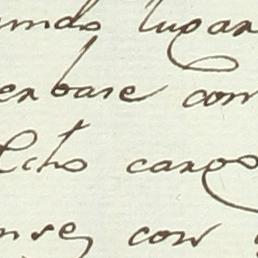 undo lugar
erbase con
dcho cargo
nse, con